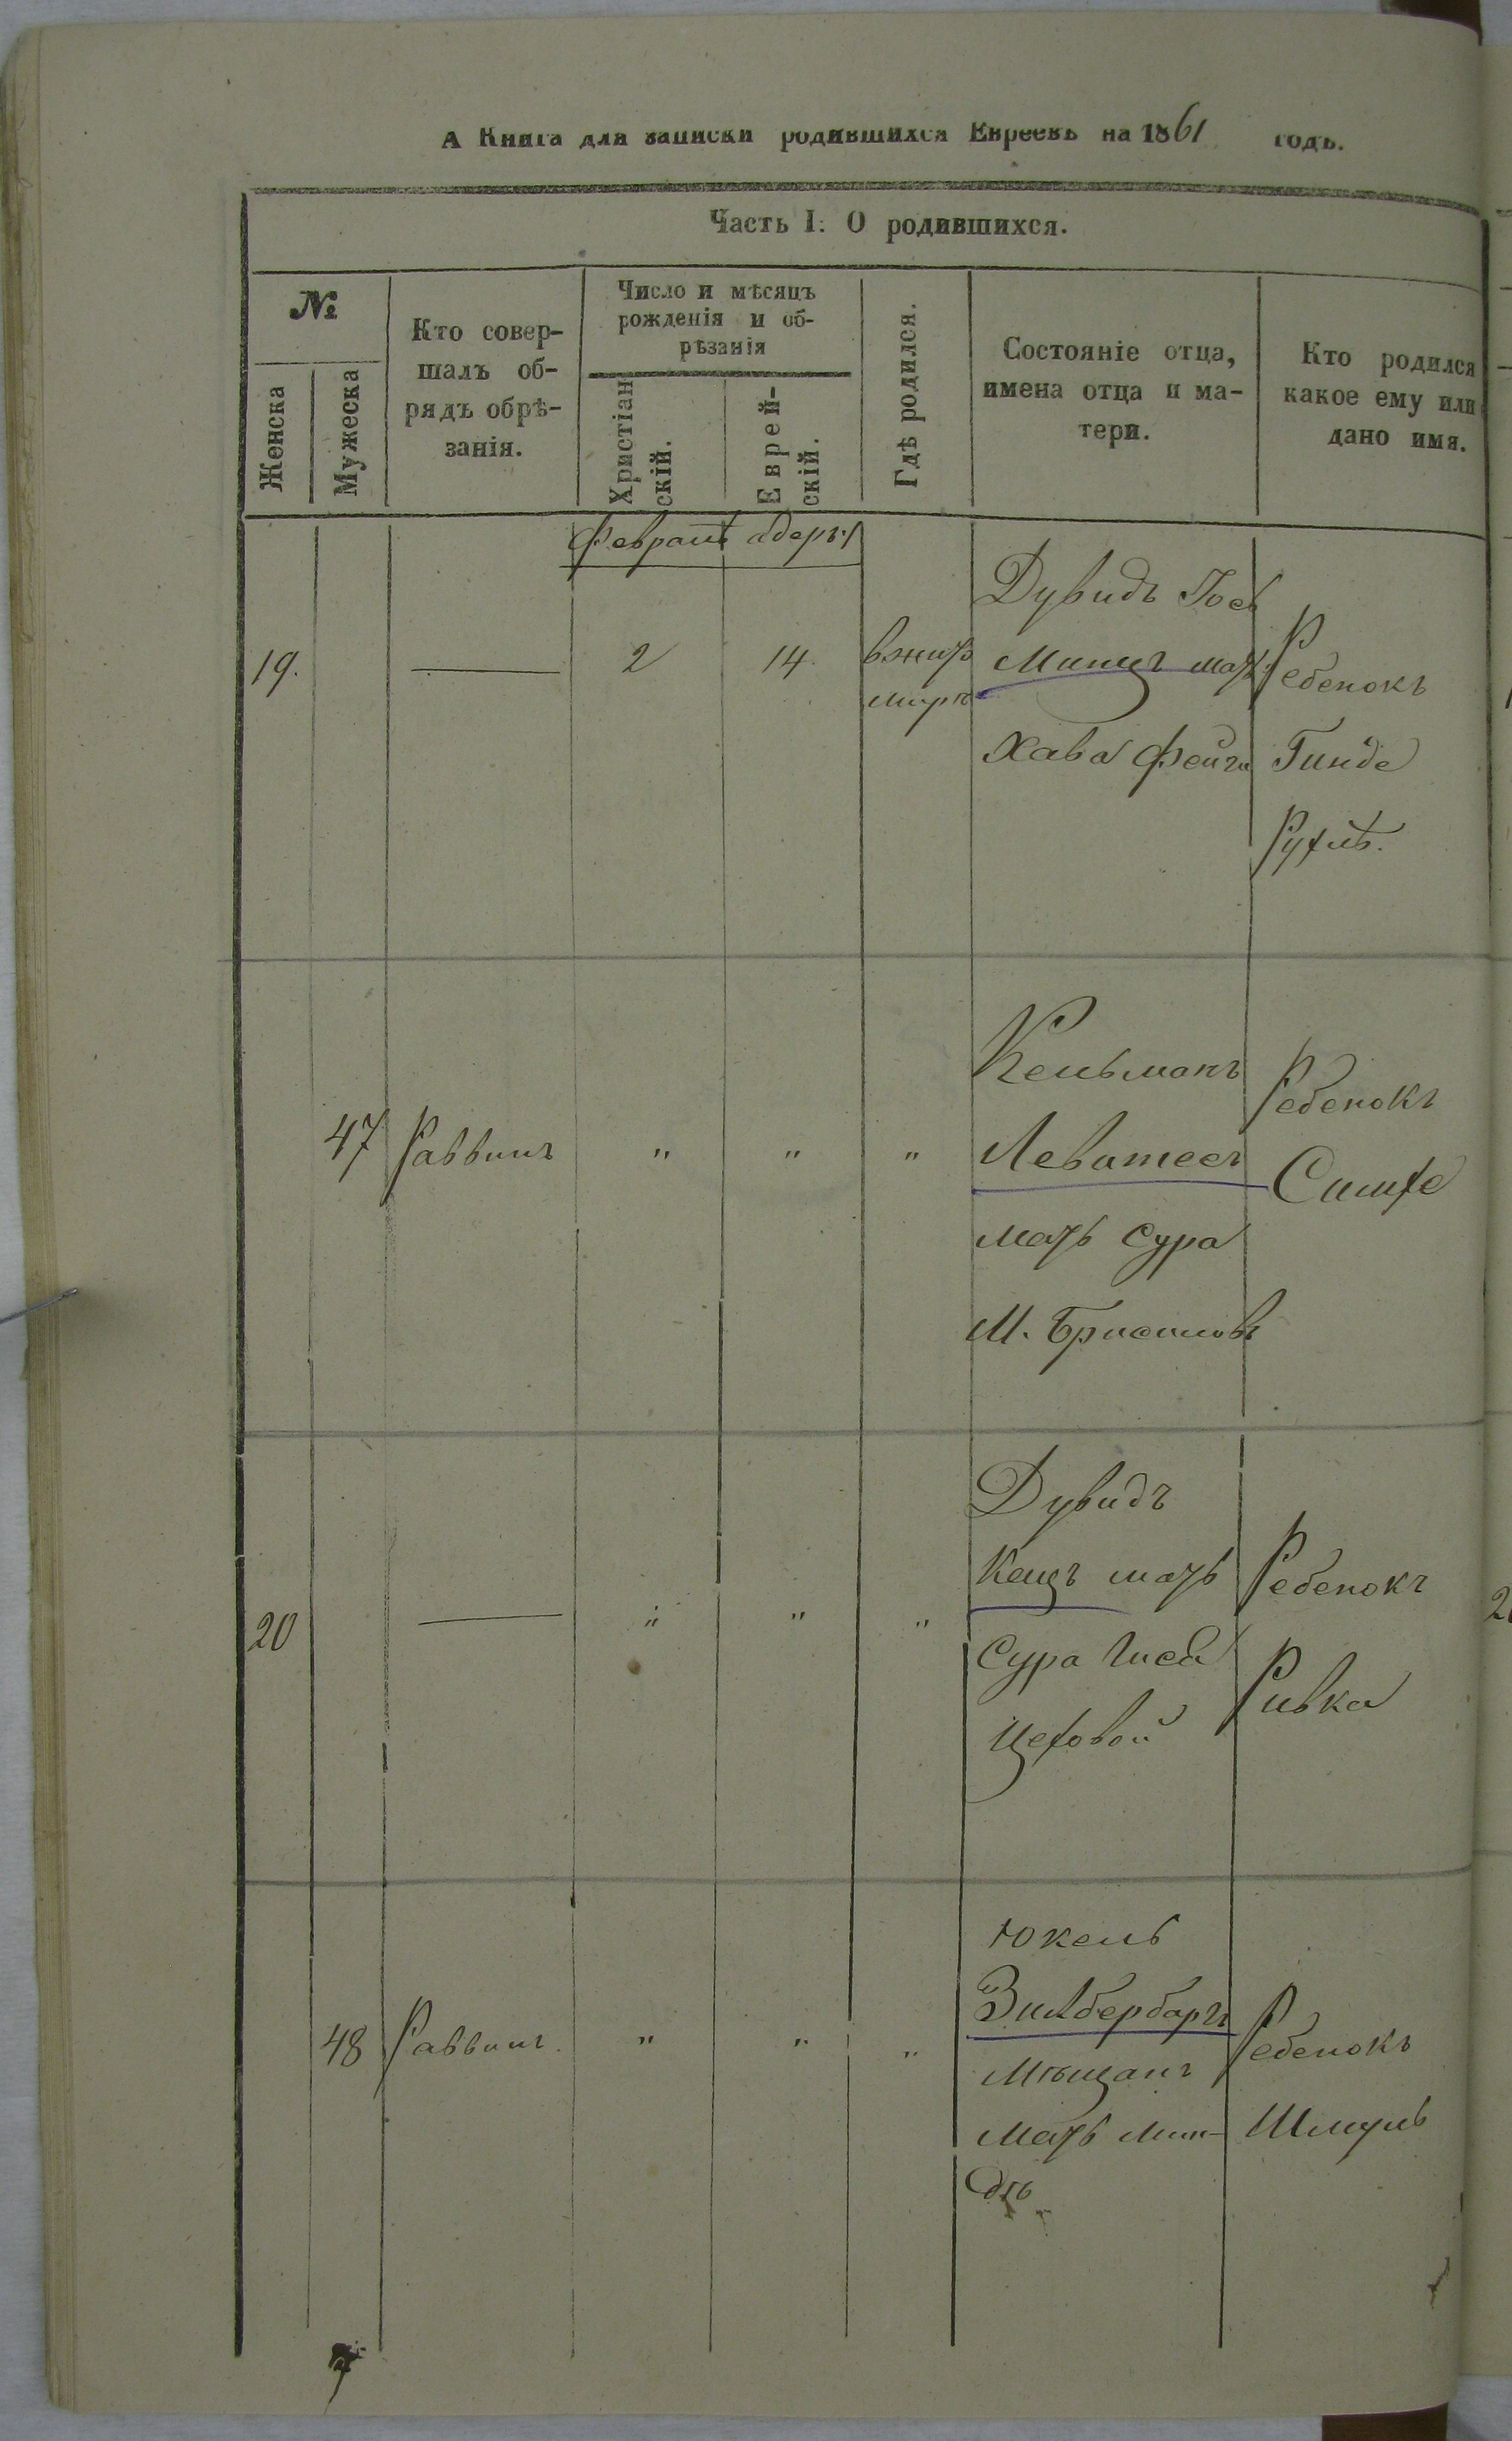 А Книга для записки родившихся Евреевъ на 1861 годъ.
Часть I. О родившихся.
№
Женска
Мужеска
Кто совер-
шалъ об-
рядъ обрѣ-
занія.
Число и мѣсяцъ
рожденія и об-
рѣзанія
Христіан
скій.
Еврей-
скій.
Гдѣ родился.
Состояніе отца,
имена отца и ма-
тери.
Кто родился
какое ему или
дано имя.
Февраль адеръ
19.
—
2
14
в жито
миръ
Дувидъ Иос
Минцъ мать
Хава Фейга
Ребенокъ
Гинде
Рухль.
47
Раввинъ
"
"
"
Кельманъ
Леватесъ
мать Сура
М.
Ребенокъ
Симхе
20
—
"
"
"
Дувидъ
Кацъ мать
Сура
Цеховой
Ребенокъ
Ривка
48
Раввинъ
"
"
"
Юкель
Зильбербаргъ
Мѣщанъ
мать Мин-
дль
Ребенокъ
Шмуль